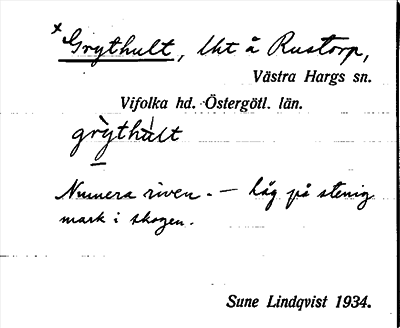 x Grythult, lht å Rustorp,
Västra Hargs sn.
Vifolka hd. Östergötl. län.
grỳthùlt
Numera riven. – Låg på stenig
mark i skogen.
Sune Lindqvist 1934.